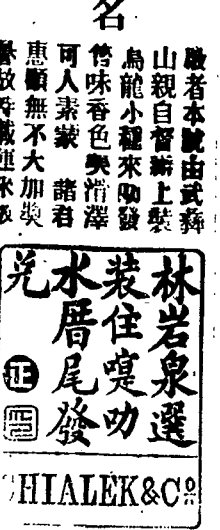 名
啟者本號由武彝
山親自督辦上裝
烏龍小種來叻發
售味香色與清澤
可人素蒙 諸君
惠顧無不大加獎
林岩泉選
装住嗼叻
水厝尾發
兑
正
HIALEK&Co